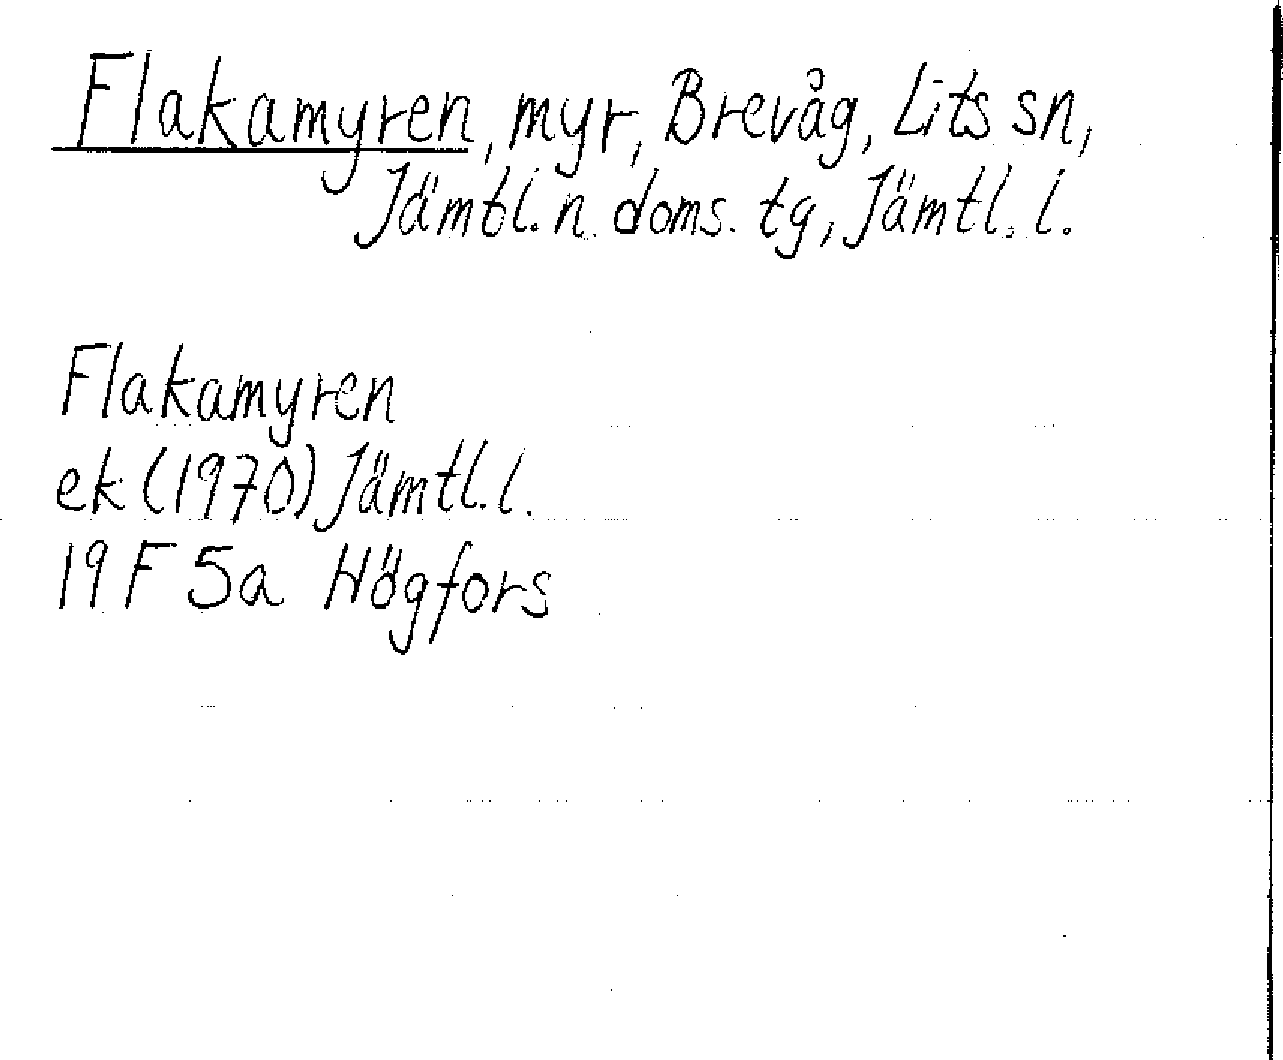 Flakamyren, myr, Brevåg, Lits sn,
Jämtl. n. doms. tg, Jämtl. l.
Flakamyren
ek (1970) Jämtl. l.
19 F 5a Högfors